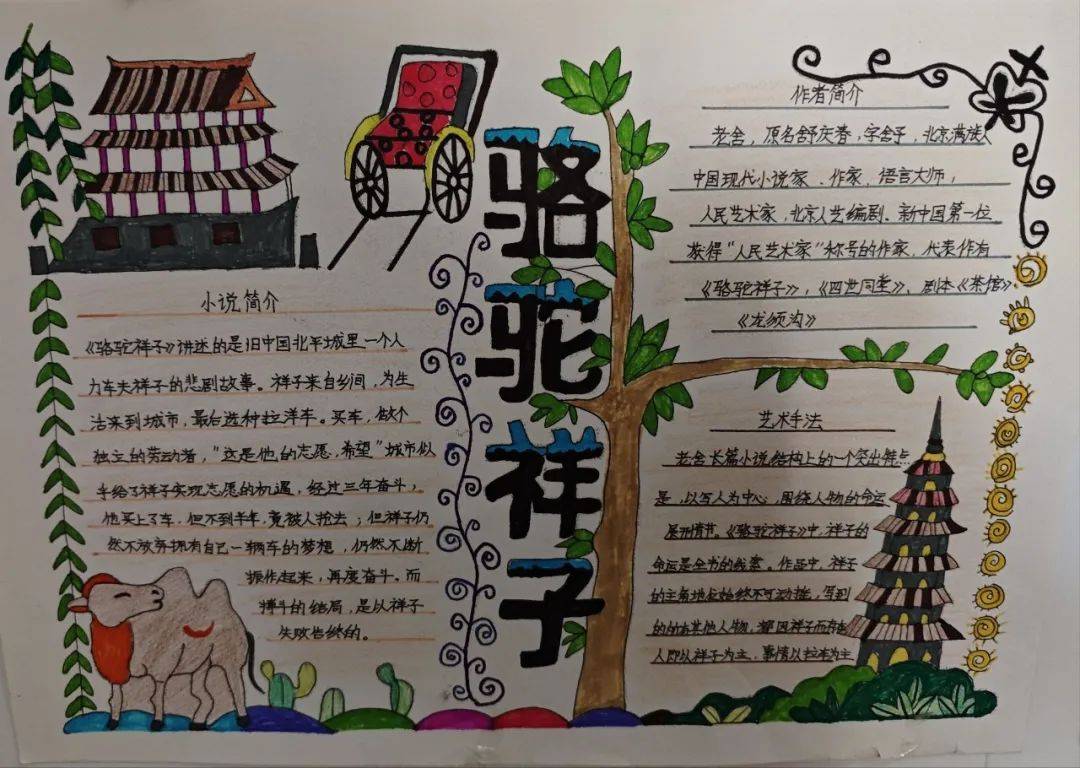 骆驼祥子
小说简介
《骆驼祥子》讲述的是旧中国北平城里一个人
力车夫祥子的悲剧故事。祥子来自乡间，为生
活来到城市，最后选种拉洋车。买车，做个
独立的劳动者，"这是他的志愿，希望"城市似
乎给了祥子实现志愿的机遇，经过三年奋斗，
他买上了车，但不到半年，竟被人抢去；但祥子仍
然不放弃拥有自己一辆车的梦想，仍然不断
振作起来，再度奋斗。而
搏斗的结局，是以祥子
失败告终的。
作者简介
老舍，原名舒庆春，字舍予，北京满族人
中国现代小说家、作家，语言大师，
人民艺术家，北京人艺编剧。新中国第一位
获得"人民艺术家"称号的作家，代表作有
《骆驼祥子》，《四世同堂》、剧本《茶馆》
《龙须沟》
艺术手法
老舍长篇小说结构上的一个突出特点
是，以写人为中心，围绕人物的命运
展开情节。《骆驼祥子》中，祥子的
命运是全书的线索，作品中，祥子
的主角地位始终不可动摇，写到
的的有其他人物，都因祥子而存在
人即以祥子为主，事情以拉车为主